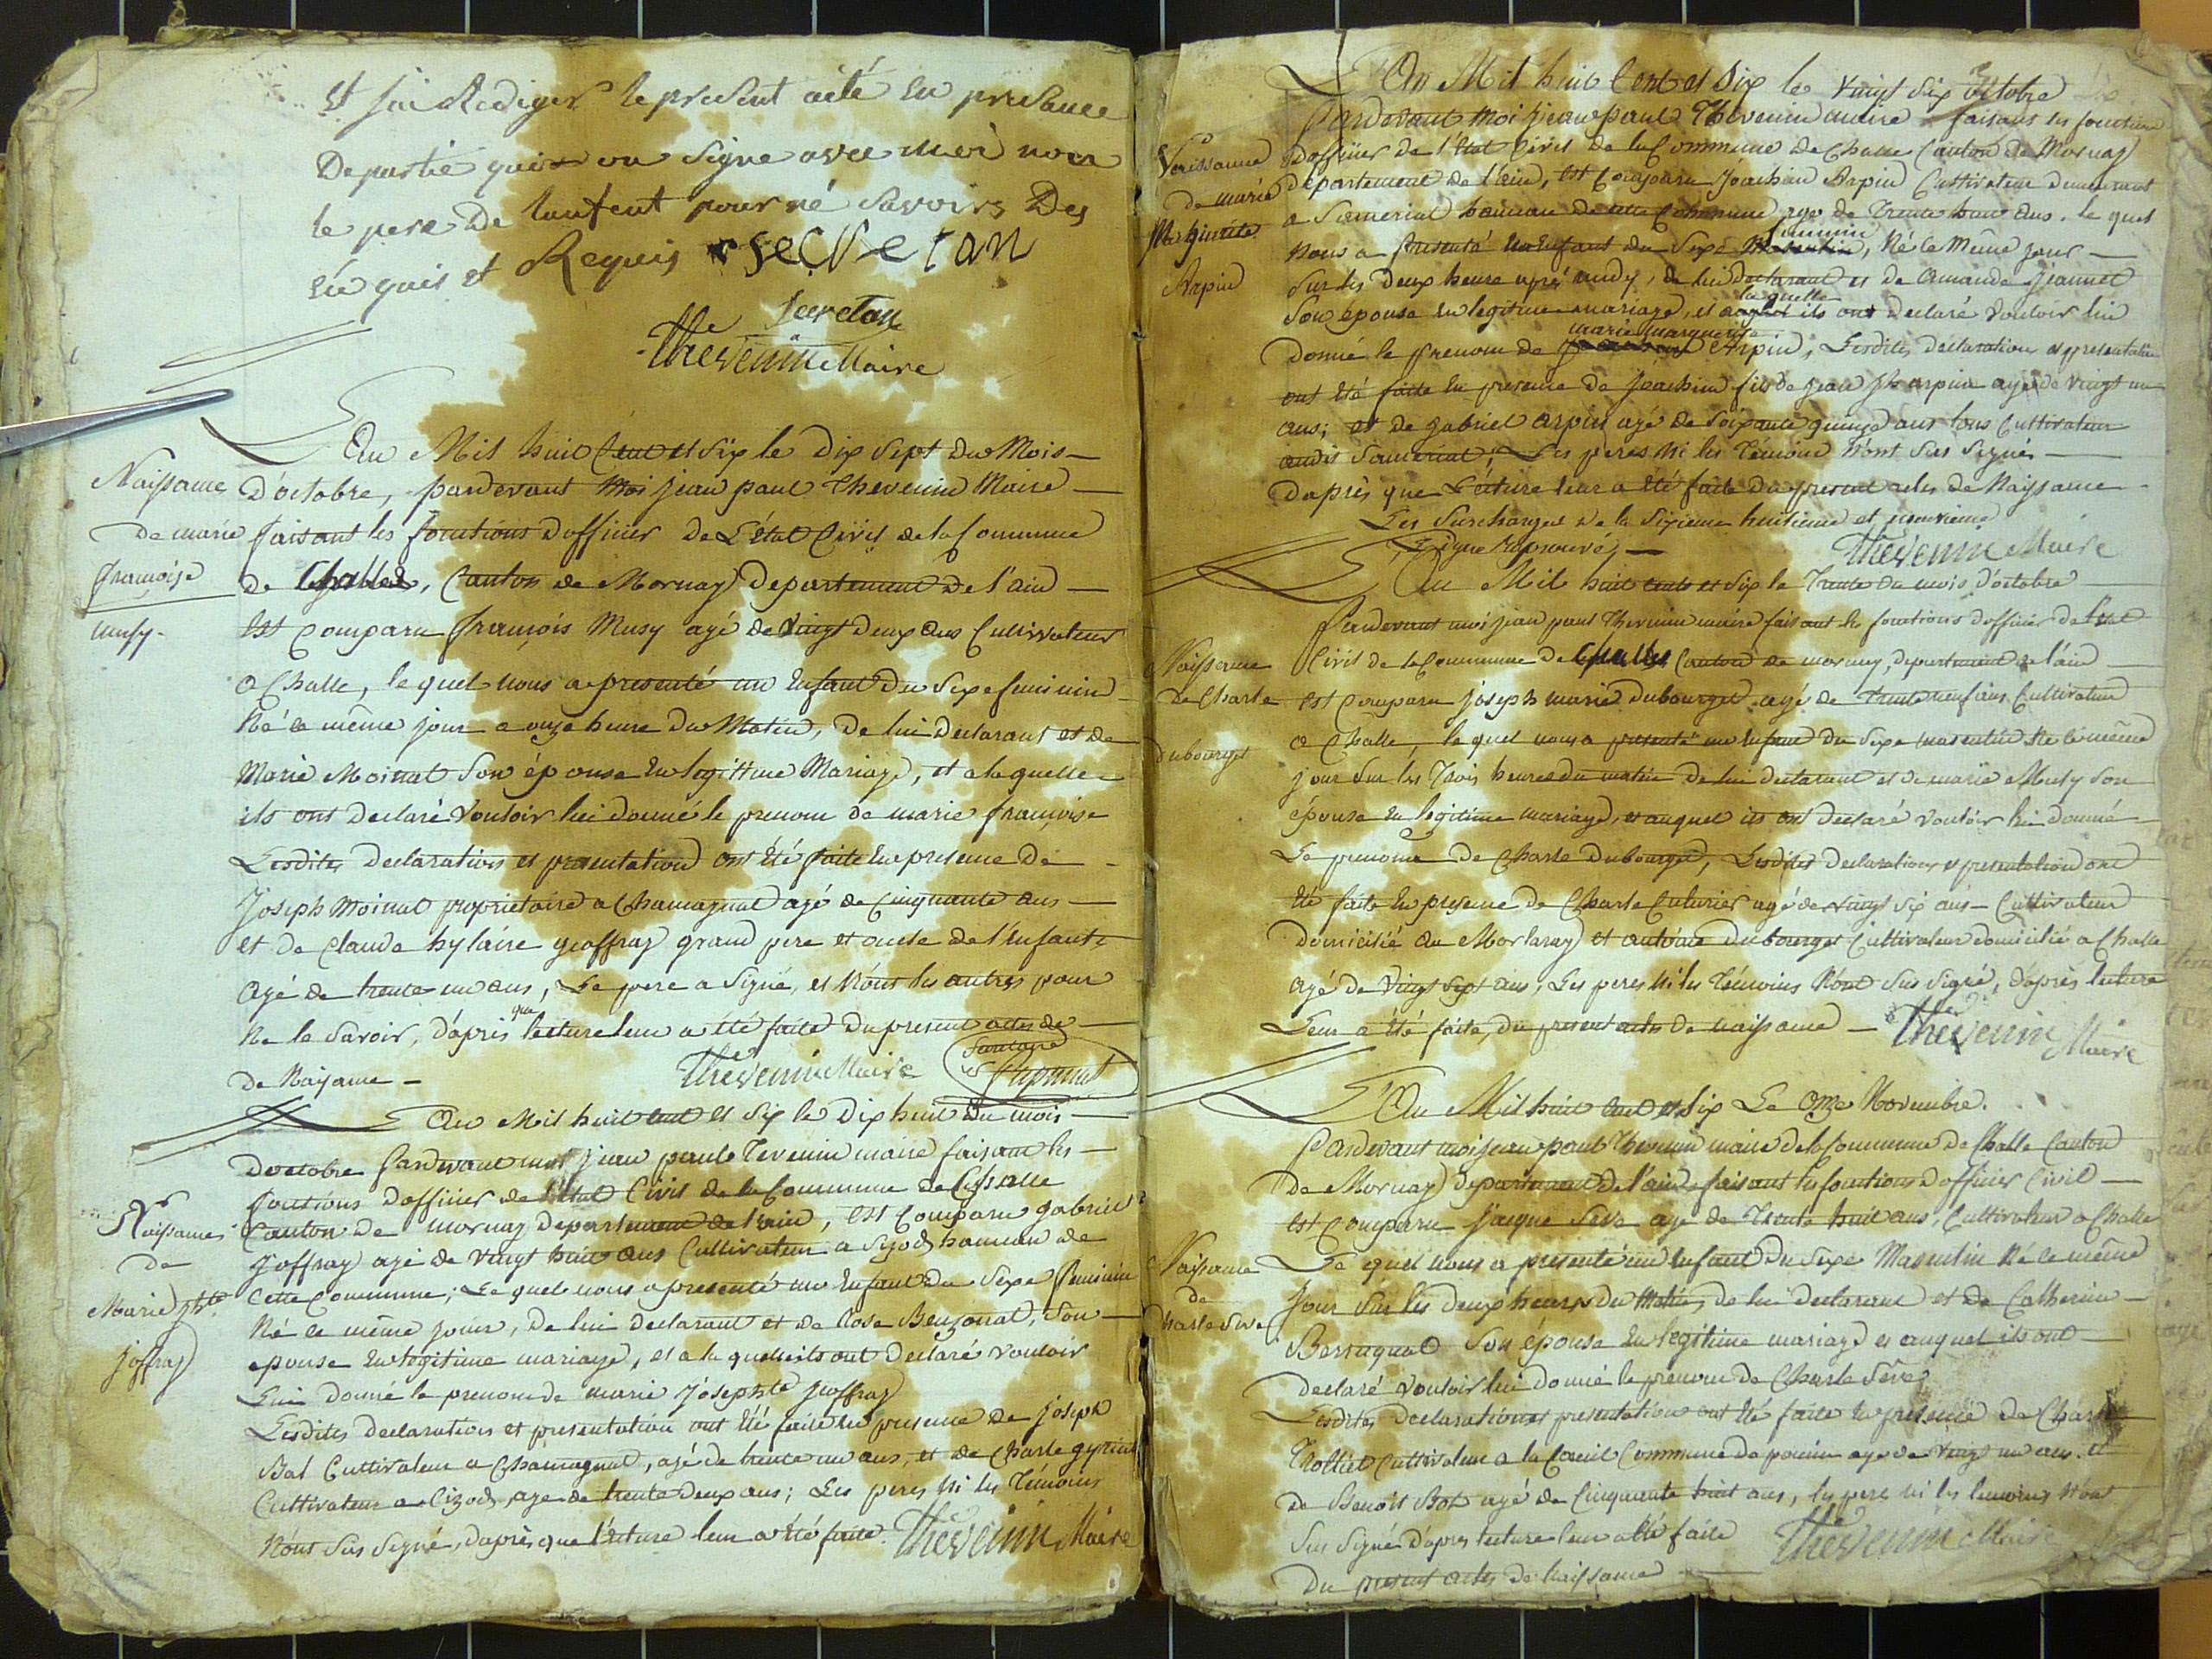 Et fai Rediger le present acté en presance
De partie quis on Signe avec moi non
le pere De lanfent pour né Savoirs Des
en quis et Requis secretan
Secretan
Thevenin Maire
An Mil huit Cent et Six le Dix Sept Du Mois
Naissance
de marie
françoise
musy
D'octobre, pardevant Moi jean paul Thevenin Maire
faisant les fonctions dofficier de L'état Civil de la Commune
de Challes, Canton de Mornay Departement De l'ain
Est Comparu françois Musy agé de vingt deux ans Cultivateur
a Challe, le quel nous a presenté un Enfant Du Sexe feminin
Né ce même jour a onze heure Du Matin, De lui Declarant et de
Marie Moinat Son épouse En legittime Mariage, et a la quelle
ils ont Declaré Vouloir lui donné le prenom de marie françoise
Lesdites declaration et presentation ont été faite En presence De
Joseph Moinat proprietaire a Chamagnat agé de Cinquante ans
et de Claude hylaire geoffray grand pere et oncle de l'Enfant
agé de trente un ans, Le pere a Signé, et Nont les autres pour
Ne le Savoir, d'après que lecture leur a été faite Du present actes de
De Naissance
Thevenin Maire
An Mil huit cent et Six le Dix huit Du mois
Naissance
de
Marie Jhte
joffray
Doctobre Pardevant moi jean paul Tevenin maire faisant les
fonctions dofficier de l'état Civil de la Commune de Challe
Canton de mornay departement de l'ain, Est Comparu gabriel
Joffray agé de vingt huit ans Cultivateur a Sizod hameau de
Cette Commune; Le quel nous a presenté un Enfant du Sexe feminin
Né ce même jour, de lui declarant et de Rose Benzonat, Son
epouse En legitime mariage, et a la quelle ils ont declaré vouloir
Lui donné le prenom de marie Josephte Joffray
Lesdites declaration et presentation ont été faite En presence de joseph
Bal Cultivateur a Chamagnat, agé de trente un ans, et de Charle
Cultivateur a Cizod, agé de trente deux ans; Les peres Ni les Témoins
N'ont Sus Signé, daprès que lecture leur a été faite. Thevenin Maire
An Mil huit Cent et Six le vingt Six octobre
Pardevant Moi jean paul Thevenin maire faisant les fonctions
Naissance
de marie
Mrguirite
Arpin
dofficier de l'état Civil de la Commune de Challe Canton de Mornay
département de l'ain, est Comparu Joachim Arpin Cultivateur demeurant
a hameau de cette Commune agé de Trente huit ans. le quel
Nous a presenté un Enfant du Sexe feminin, Né le Même jour
Sur les deux heure après midy, de lui Declarant et de Amande Jeannet
Son épouse en legitime mariage, et la quelle ils ont declaré Vouloir lui
Donné le prenom de marie marguerite Arpin, Lesdites declaration et presentation
ont été faite En presence de Joachim fils de jean Arpin agé de vingt un
ans; et de gabriel Arpin agé de Soixante quinze ans tous Cultivateur
audit; Les peres Ni les Témoins N'ont Sus Signés
Daprès que Lecture leur a été faite du present actes de Naissance
Les Surcharges de la Sixieme huitieme et neuvieme
Ligne approuvé, Thevenin Maire
An Mil huit cents et Six le Trente du mois d'octobre
Pardevant moi jean paul Thevenin maire faisant les fonctions dofficier de l'etat
Naissance
De Charle
Dubourget
Civil de la Commune de Challes Canton de mornay, departement de l'ain
Est Comparu joseph marie Dubourget agé de Trente neuf ans Cultivateur
a Challe, le quel nous a presenté un Enfant du Sexe masculin Né le même
jour Sur les Trois heures du matin de lui declarant et de marie Musy Son
épouse En legitime mariage, et auquel ils ont declaré Vouloir lui donné
Le prenom de Charle Dubourget, Lesdites declaration et presentation ont
été faite En presence de Charle Cuturier agé de vingt Six ans Cultivateur
Domicilié au Morlaray et antoine Dubourget Cultivateur domicilié a Challe
agé de vingt Sept ans, Les peres Ni les Témoins N'ont Sus Signé, d'après lecture
Leur a été faite, du present actes de naissance Thevenin Maire
An Mil huit cent et Six Le Onze Novembre.
Pardevant moi jean paul Thevenin maire de la Commune de Challe Canton
De Mornay departement de l'ain faisant les fonctions dofficier Civil
Est Comparu Jacque Seve agé de Trente huit ans, Cultivateur a Challe
Naissance
de
Charle Seve
Le quel nous a presenté un Enfant Du Sexe Masculin Né le même
Jour Sur les deux heures Du Matin, de lui declarant et de Catherine
Son épouse En legitime mariage et auquel ils ont
declaré vouloir lui donné le prenom de Charle Seve
Lesdites declaration et presentation ont été faite En presence de Charle
Tholliet Cultivateur a la Commune de agé de vingt un ans. et
de Benoit Bol agé de Cinquante huit ans, les pere ni les temoins N'ont
Sus Signé d'après lecture leur a été faite
Thevenin Maire
Du present actes de Naissance